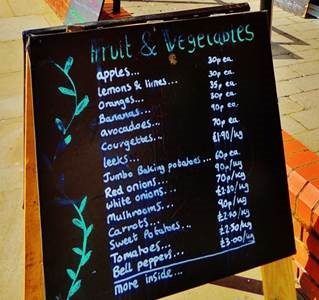 Fruit & Vegetables
apples... 30p ea.
lemons & limes... 30p ea.
Oranges... 35p ea.
Bananas... ea.
avocadoes... 90p ea.
Courgettes... 70p ea
leeks... £1.90/kg
Jumbo Baking potatoes... 60p ea
Red onions... 90p/kg
White onions... 70p/kg
Mushrooms...
Carrots... 90p/kg
Sweet Potatoes...
Tomatoes... £2.50/kg
Bell peppers... £3.00/kg
more inside...